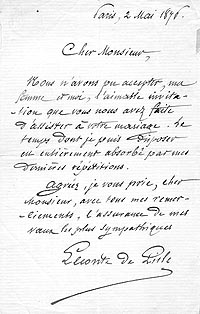 Paris, 2 Mai 1876.
Cher Monsieur,
Nous n'avons pu accepter, ma
femme et moi, l'aimable invita-
tion que vous nous avez faite
d'assister à votre mariage. Le
temps dont je puis disposer
est entièrement absorbé par mes
dernières répétitions.
Agréez, je vous prie, cher
Monsieur, avec tous mes remer-
ciements, l'assurance de mes
vœux les plus sympathiques
Leconte de Lisle